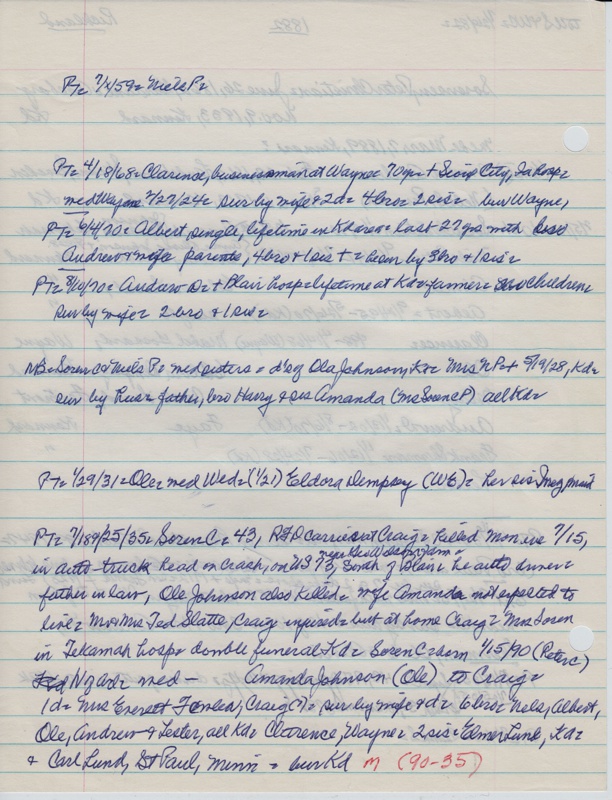 PT= 7/x/59= Niels P=
PT= 4/18/68= Clarence, businessman at Wayne= 70yr= + Sioux City, Ia hosp=
med Wayne 2/27/24= sur by wife + 2d= 4bro= 2sis= bur Wayne,
PT= 6/4/70= Albert, single, lifetime in Kd area= last 27yrs with bro
Andrew + wife parents, 4bro + 1sis += been by 3bro + 1sis=
PT= 8/10/70= Andrew D= + Blair hosp= lifetime at Kd= farmer= children=
sur by wife= 2bro + 1sis=
NB= Soren C= Niels P= med sisters = d's of Ole Johnson, Kd= Mrs NP= + 5/19/28, Kd=
sur by hus= father, bro Harry + sis Amanda (Mrs Soren P) all Kd=
PT= 1/29/31= Ole= med Wed= (1/21) Eldora Dempsey (WE)= her sis Inez
PT= 7/18 9/25/35= Soren C= 43, RFD carrier at Craig= killed Mon. eve 7/15,
in auto-truck head on crash, on US 73, near Geo W dam= South of Blair= he auto driver=
father in law, Ole Johnson also killed= wife Amanda not expected to
live= Mr + Mrs Ted Slatte, Craig injured= but at home Craig= Mrs Soren
in Tekamah hosp= double funeral Kd= Soren C= born 1/15/90 (Peter C)
N of Kd= med — Amanda Johnson (Ole) to Craig=
1d= Mrs Everett, Craig (?)= sur by wife + d= 6bro= Nels, Albert,
Ole, Andrew + Lester, all Kd= Clarence, Wayne= 2sis= Elmer Lund, Kd=
+ Carl Lund, St Paul, Minn = bur Kd m (90-35)